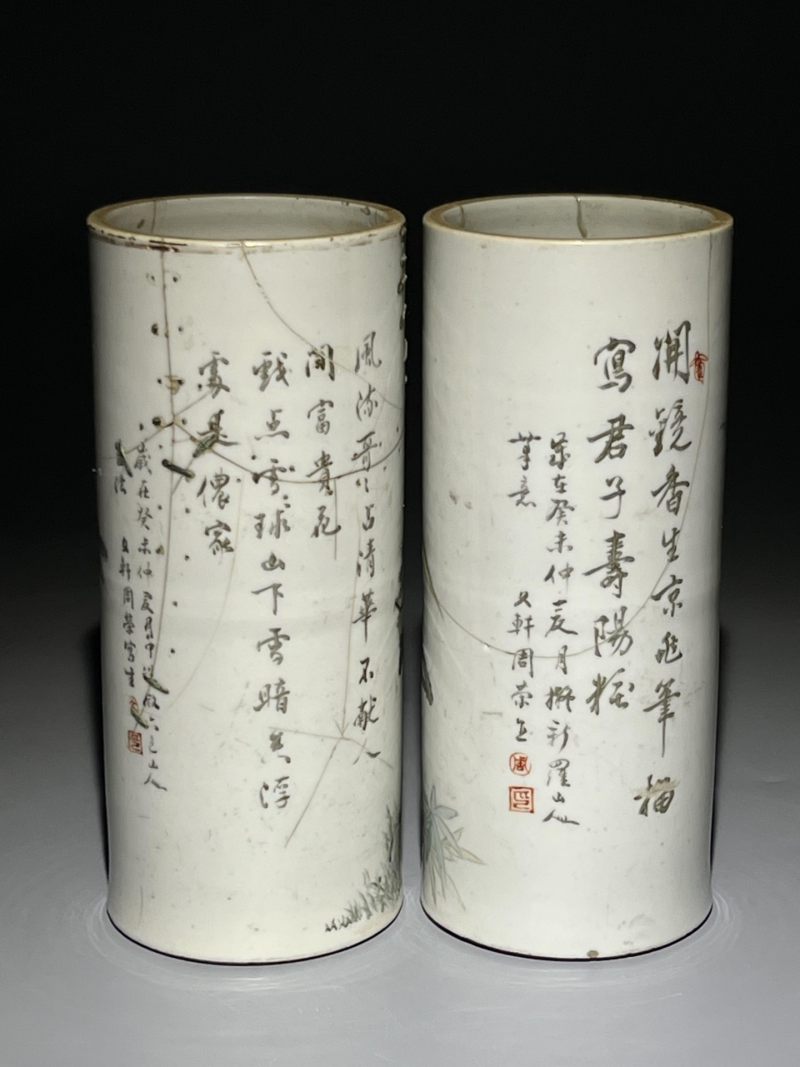 開鏡香生京兆筆描
寫君子壽陽粧
歲在癸未仲夏月擬新羅山人
筆意
文軒周榮
風流哥〻占清華不献人
間富貴花
戲点雪球山下雪暗香浮
處是儂家
歲在癸未仲夏月中浣山人
法
文軒周榮寫生